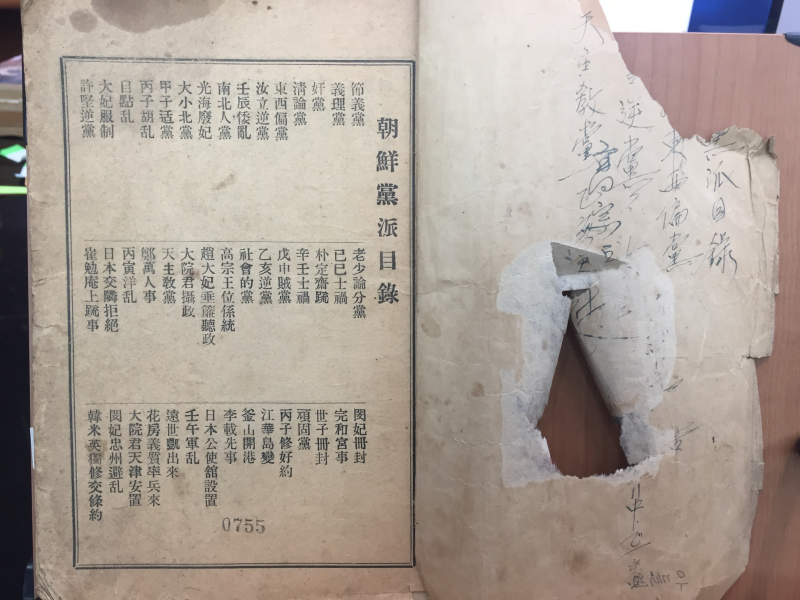 朝鮮黨派目錄
節義黨
義理黨
奸黨
淸論黨
東西偏黨
汝立逆黨
壬辰倭亂
南北人黨
光海廢妃
大小北黨
甲子适黨
丙子胡乱
自點乱
大妃服制
許堅逆黨
老少論分黨
己巳士禍
朴定齋疏
辛壬士禍
戊申賊黨
乙亥逆黨
社會的黨
高宗王位係統
趙大妃垂簾聽政
大院君攝政
天主敎黨
鄭萬人事
丙寅洋乱
日本交隣拒絶
崔勉庵上疏事
閔妃冊封
完和宮事
世子冊封
頑固黨
丙子修好約
江華島變
釜山開港
李載先事
日本公使舘設置
壬午軍乱
遠世凱出來
花房義質率兵來
大院君天津安置
閔妃忠州避乱
韓米英獨修交條約
0755
派目錄
東西偏黨
逆黨
天主敎黨